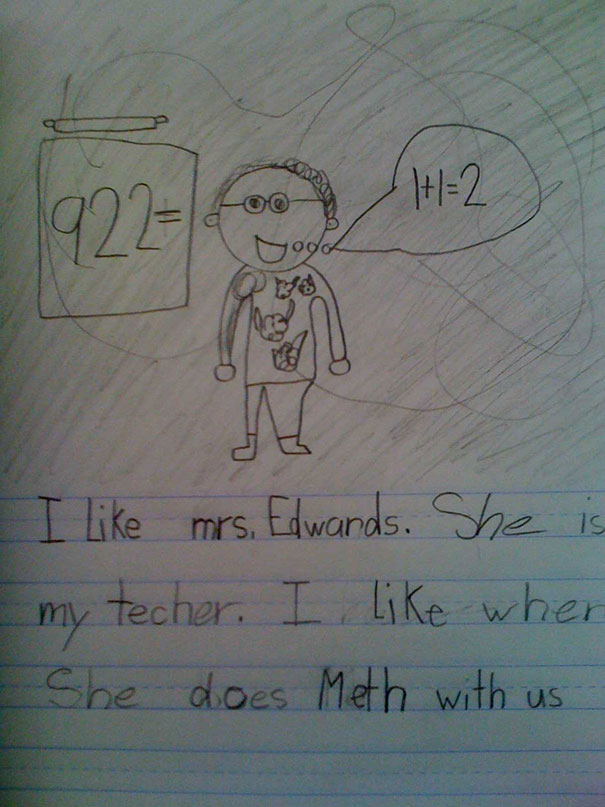 922=
1+1=2
I like mrs. Edwards. She is
my techer. I like wher
She does Meth with us